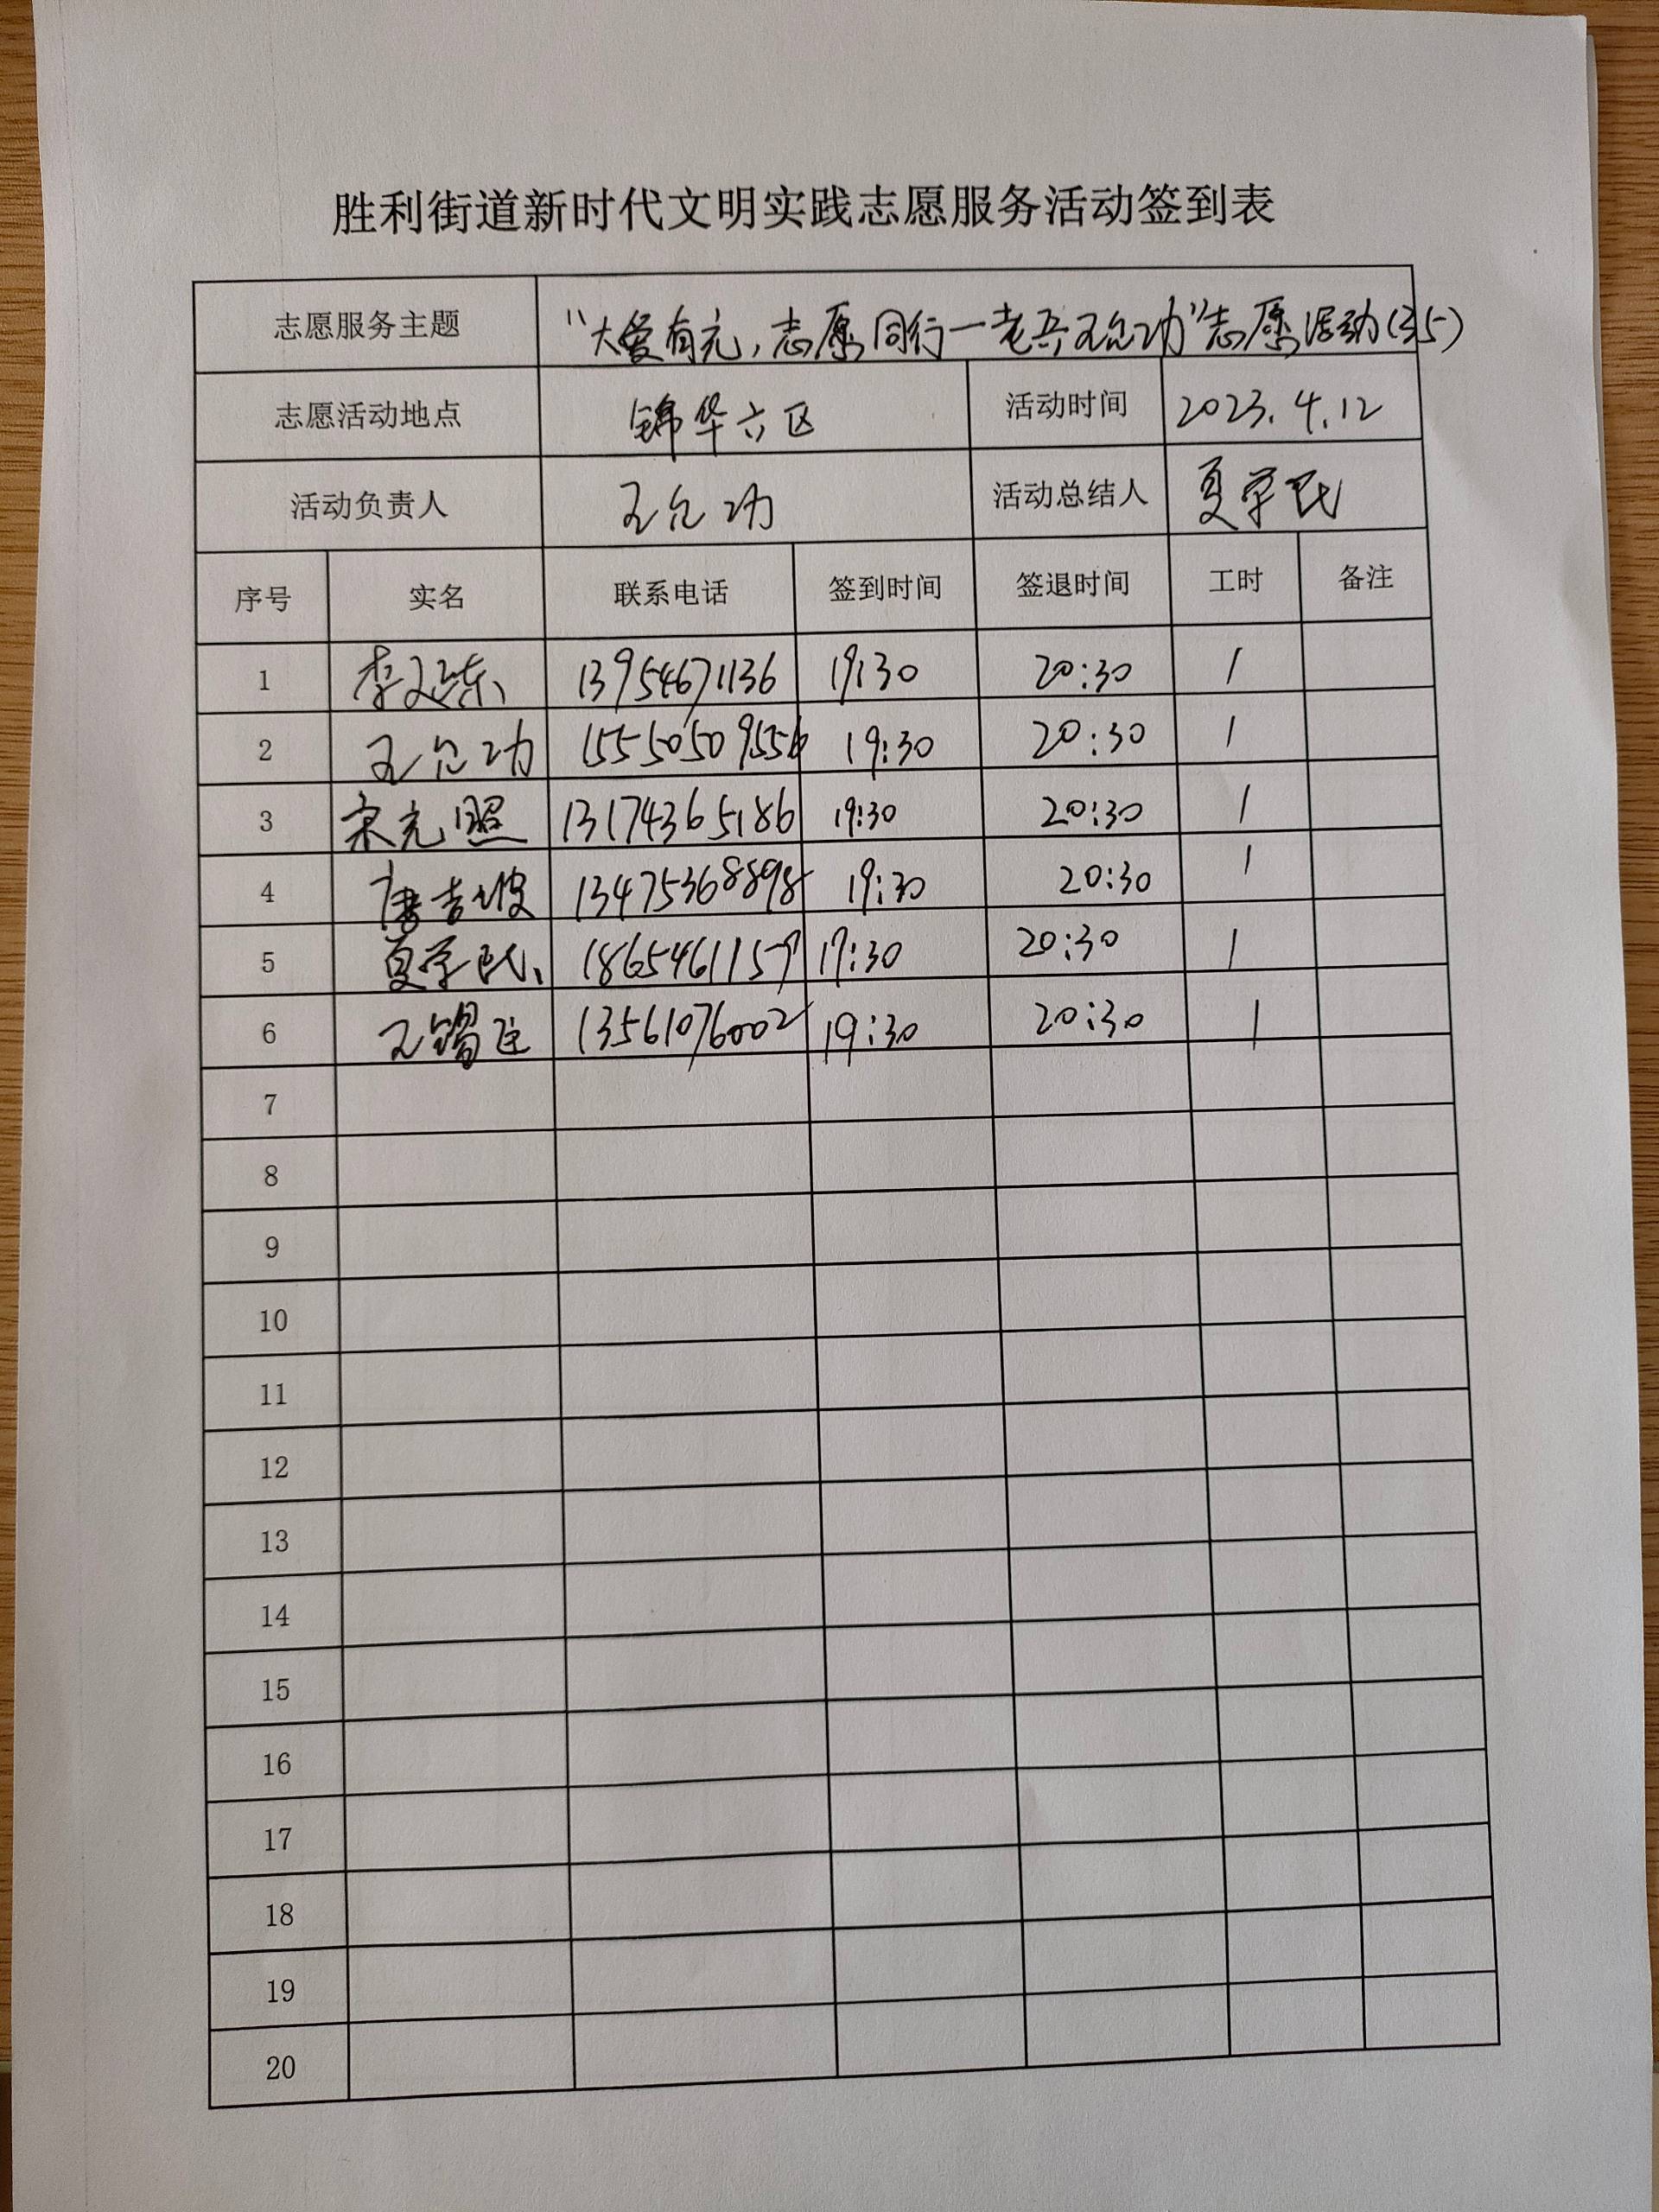 胜利街道新时代文明实践志愿服务活动签到表
志愿服务主题 “大爱有元,志愿同行一老兵王允功”志愿活动(35)
志愿活动地点 锦华六区 活动时间 2023.4.12
活动负责人 王允功 活动总结人 夏学民
序号 实名 联系电话 签到时间 签退时间 工时 备注
1 李延东 13954671136 19:30 20:30 1
2 王允功 15550509556 19:30 20:30 1
3 宋元照 13174365186 19:30 20:30 1
4 唐吉坡 13475368898 19:30 20:30 1
5 夏学民 19:30 20:30 1
6 王锡 13561076002 19:30 20:30 1
7
8
9
10
11
12
13
14
15
16
17
18
19
20